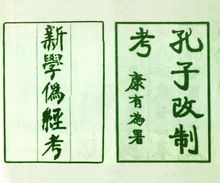 孔子改制
考
康有為署
新學偽經考